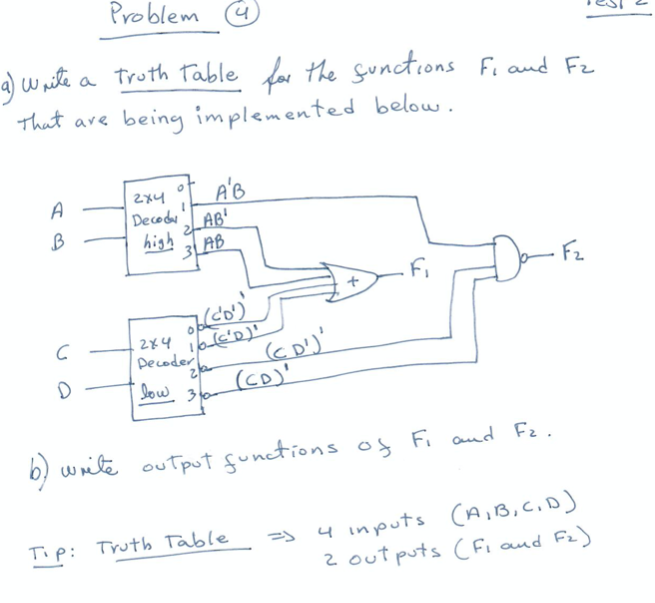 Problem 4
Test 2
a) Write a Truth Table for the functions F1 and F2
that are being implemented below.
A
B
2x4
Decoder
high
0
1
2
3
A'B
AB'
AB
+
F1
F2
C
D
2x4
Decoder
low
0
1
2
3
(C'D')'
(C'D)'
(CD')'
(CD)'
b) write output functions of F1 and F2.
Tip: Truth Table => 4 inputs (A,B,C,D)
2 outputs (F1 and F2)